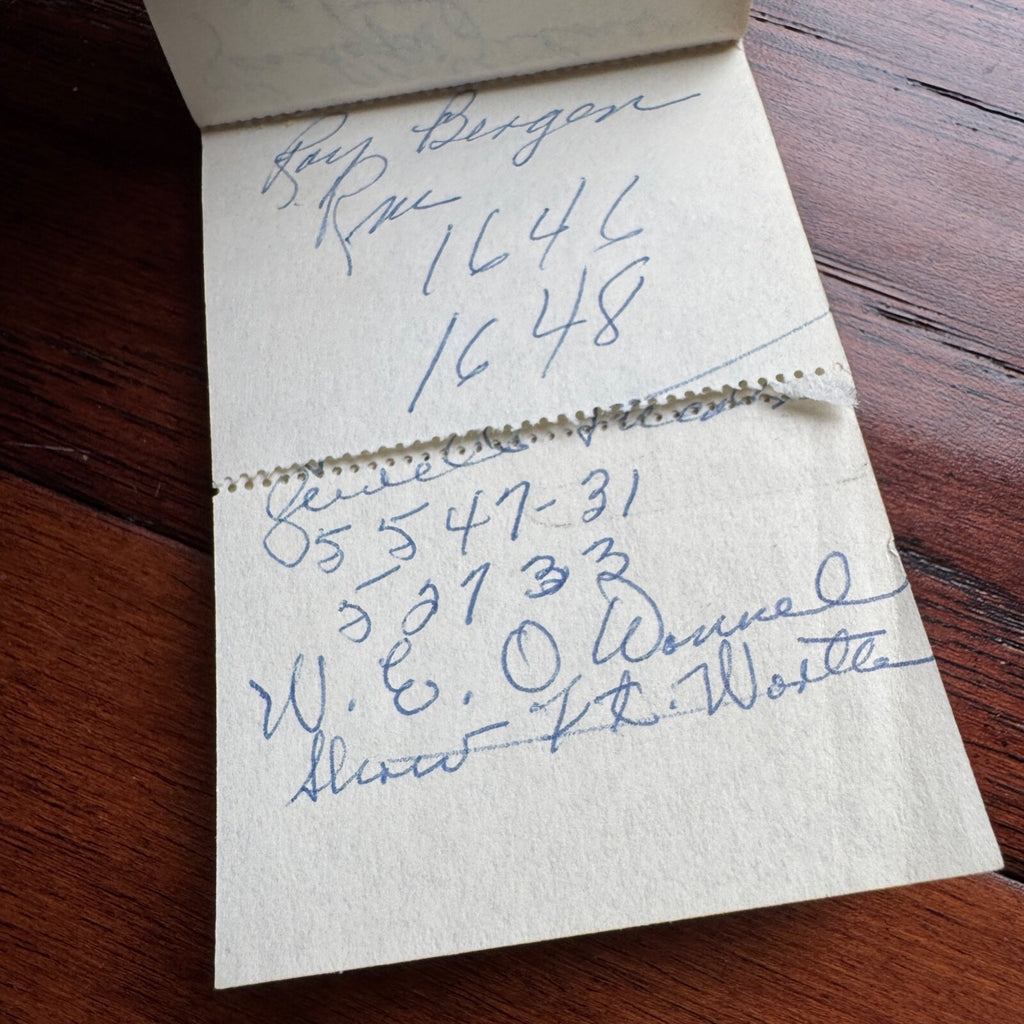 Roy Bergen
Rm
1646
1648
5547-31
52733
W. E. O Donnel
Show Ft. Worth